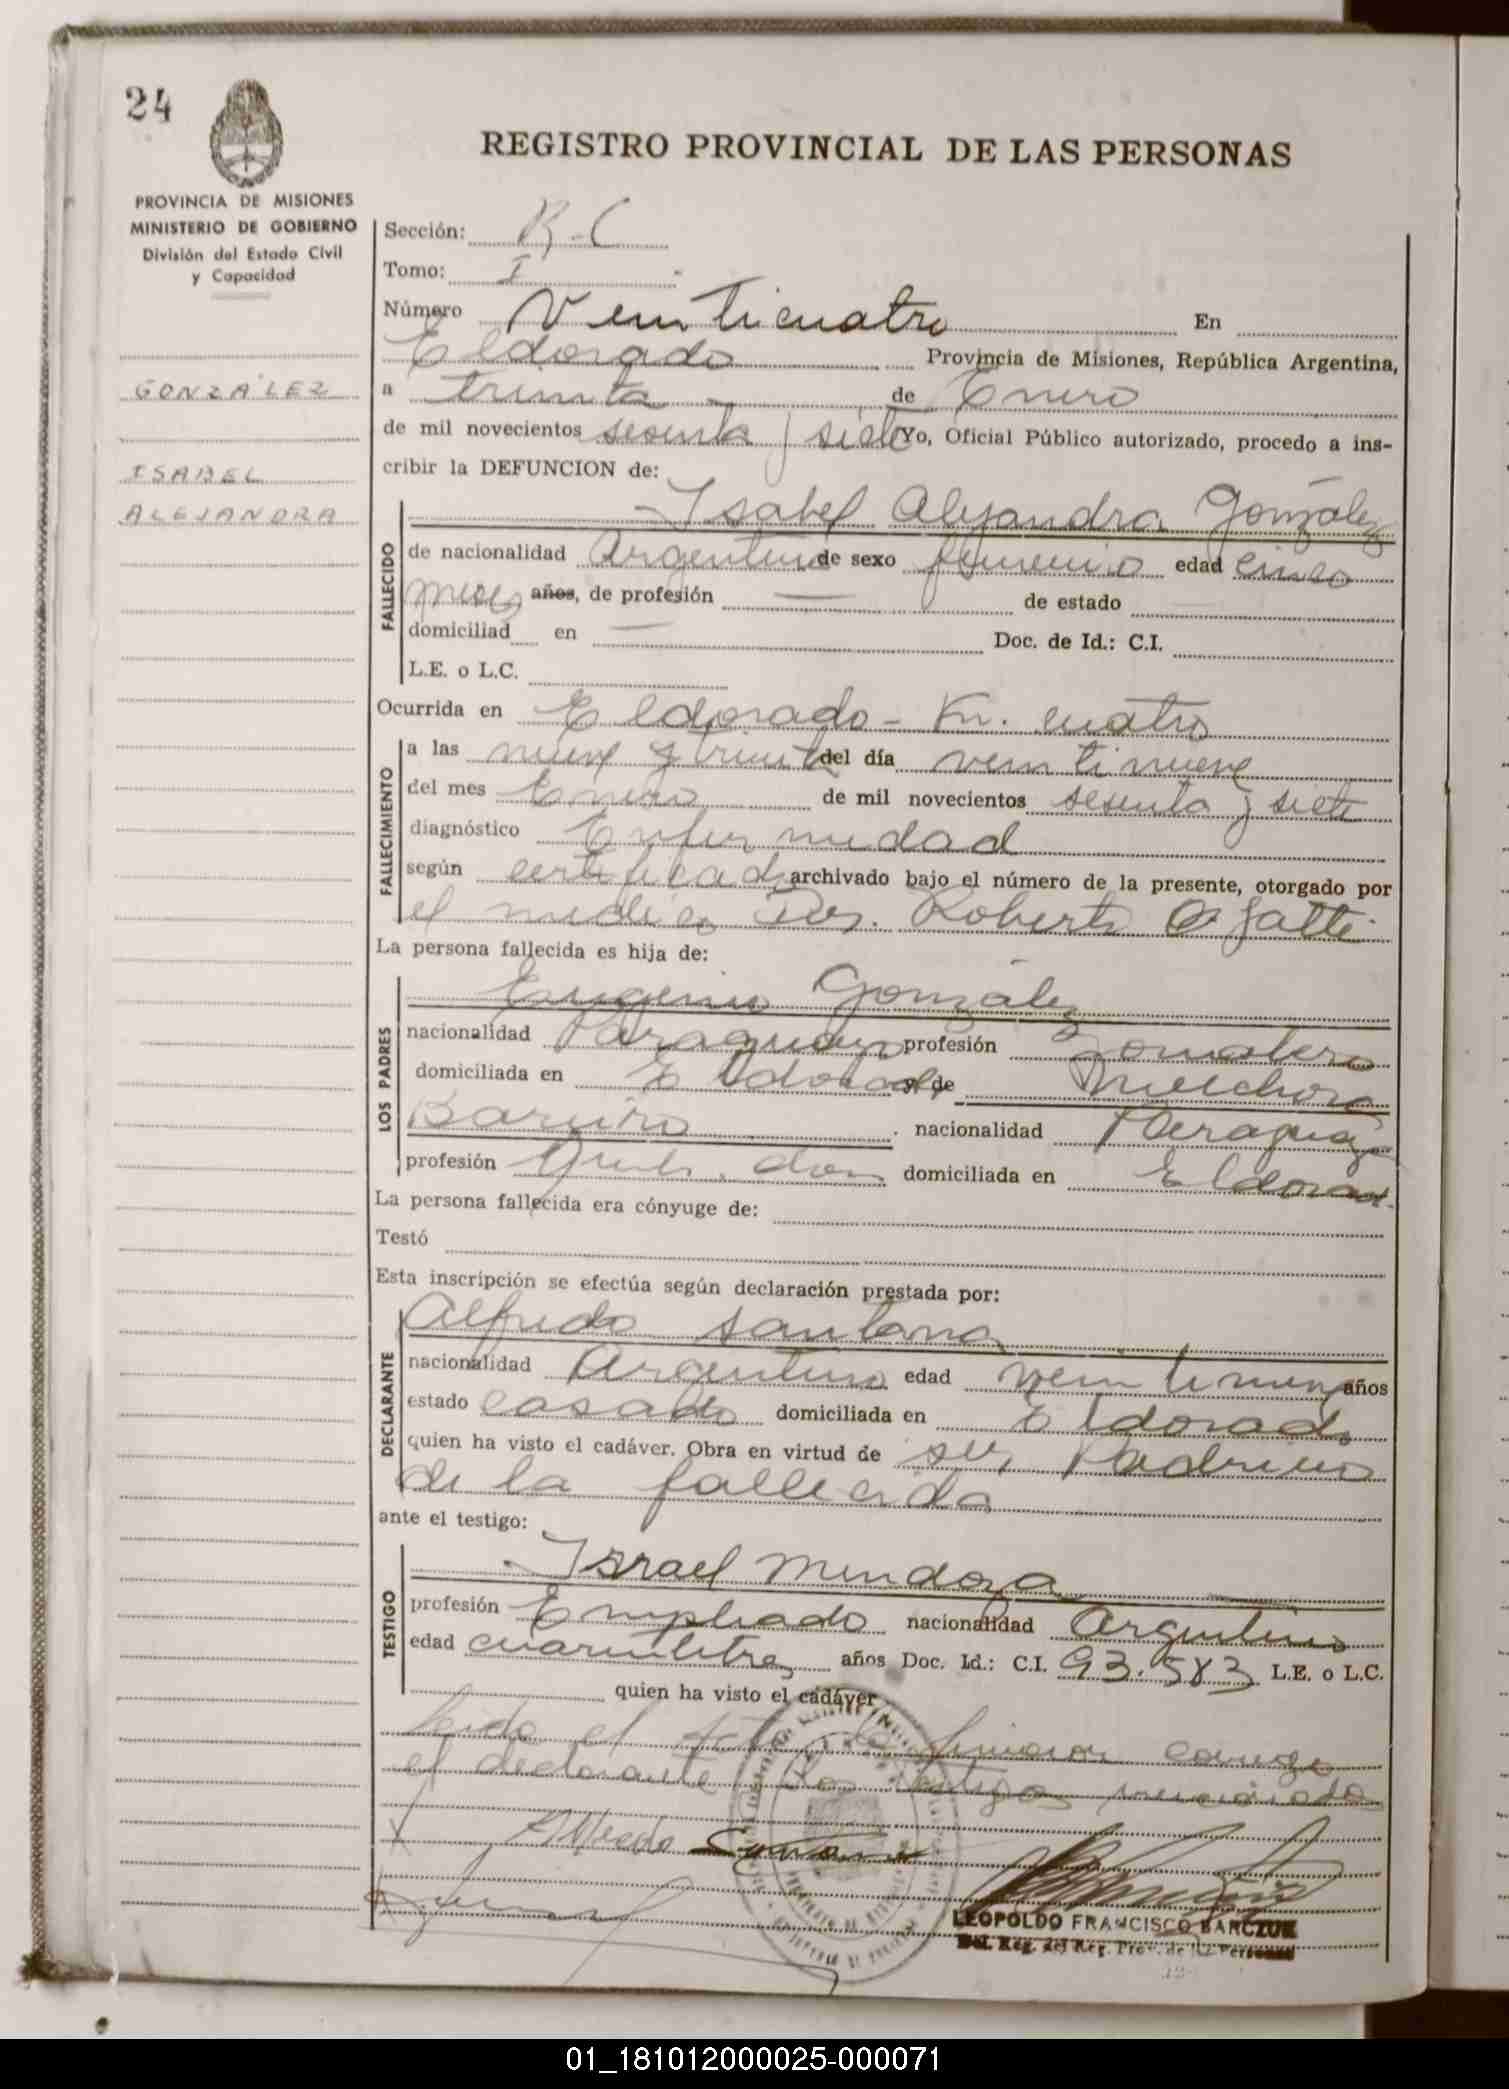 24
REGISTRO PROVINCIAL DE LAS PERSONAS
PROVINCIA DE MISIONES
MINISTERIO DE GOBIERNO
División del Estado Civil
y Capacidad
GONZÁLEZ
ISABEL
ALEJANDRA
Sección: R-C
Tomo: I
Número Veinticuatro En
Eldorado Provincia de Misiones, República Argentina,
a treinta de Enero
de mil novecientos sesenta y siete Yo, Oficial Público autorizado, procedo a ins-
cribir la DEFUNCION de:
FALLECIDO
Isabel Alejandra González
de nacionalidad Argentina de sexo femenino edad cinco
meses años, de profesión — de estado
domiciliad en — Doc. de Id.: C.I.
L.E. o L.C.
Ocurrida en Eldorado - Km. cuatro
FALLECIMIENTO
a las nueve y treinta del día veintinueve
del mes Enero de mil novecientos sesenta y siete
diagnóstico Enfermedad
según certificado archivado bajo el número de la presente, otorgado por
el médico Roberto
La persona fallecida es hija de:
LOS PADRES
Eugenio González
nacionalidad Paraguayo profesión Jornalero
domiciliada en Eldorado y de Melchora
Barrios nacionalidad Paraguay
profesión Queh. dom domiciliada en Eldorado
La persona fallecida era cónyuge de:
Testó
Esta inscripción se efectúa según declaración prestada por:
DECLARANTE
Alfredo Santana
nacionalidad Argentino edad años
estado casado domiciliada en Eldorado
quien ha visto el cadáver. Obra en virtud de ser Padrino
de la fallecida
ante el testigo:
TESTIGO
Israel Mendoza
profesión Empleado nacionalidad Argentino
edad cuarentitres años Doc. Id.: C.I. 93.583 L.E. o L.C.
quien ha visto el cadáver
Leida el acta la firman conmigo
el declarante y los testigos mencionados
X Alfredo Santana
LEOPOLDO FRANCISCO BARCZUK
Del. Reg. del Reg. Prov. de las Personas
01_181012000025-000071